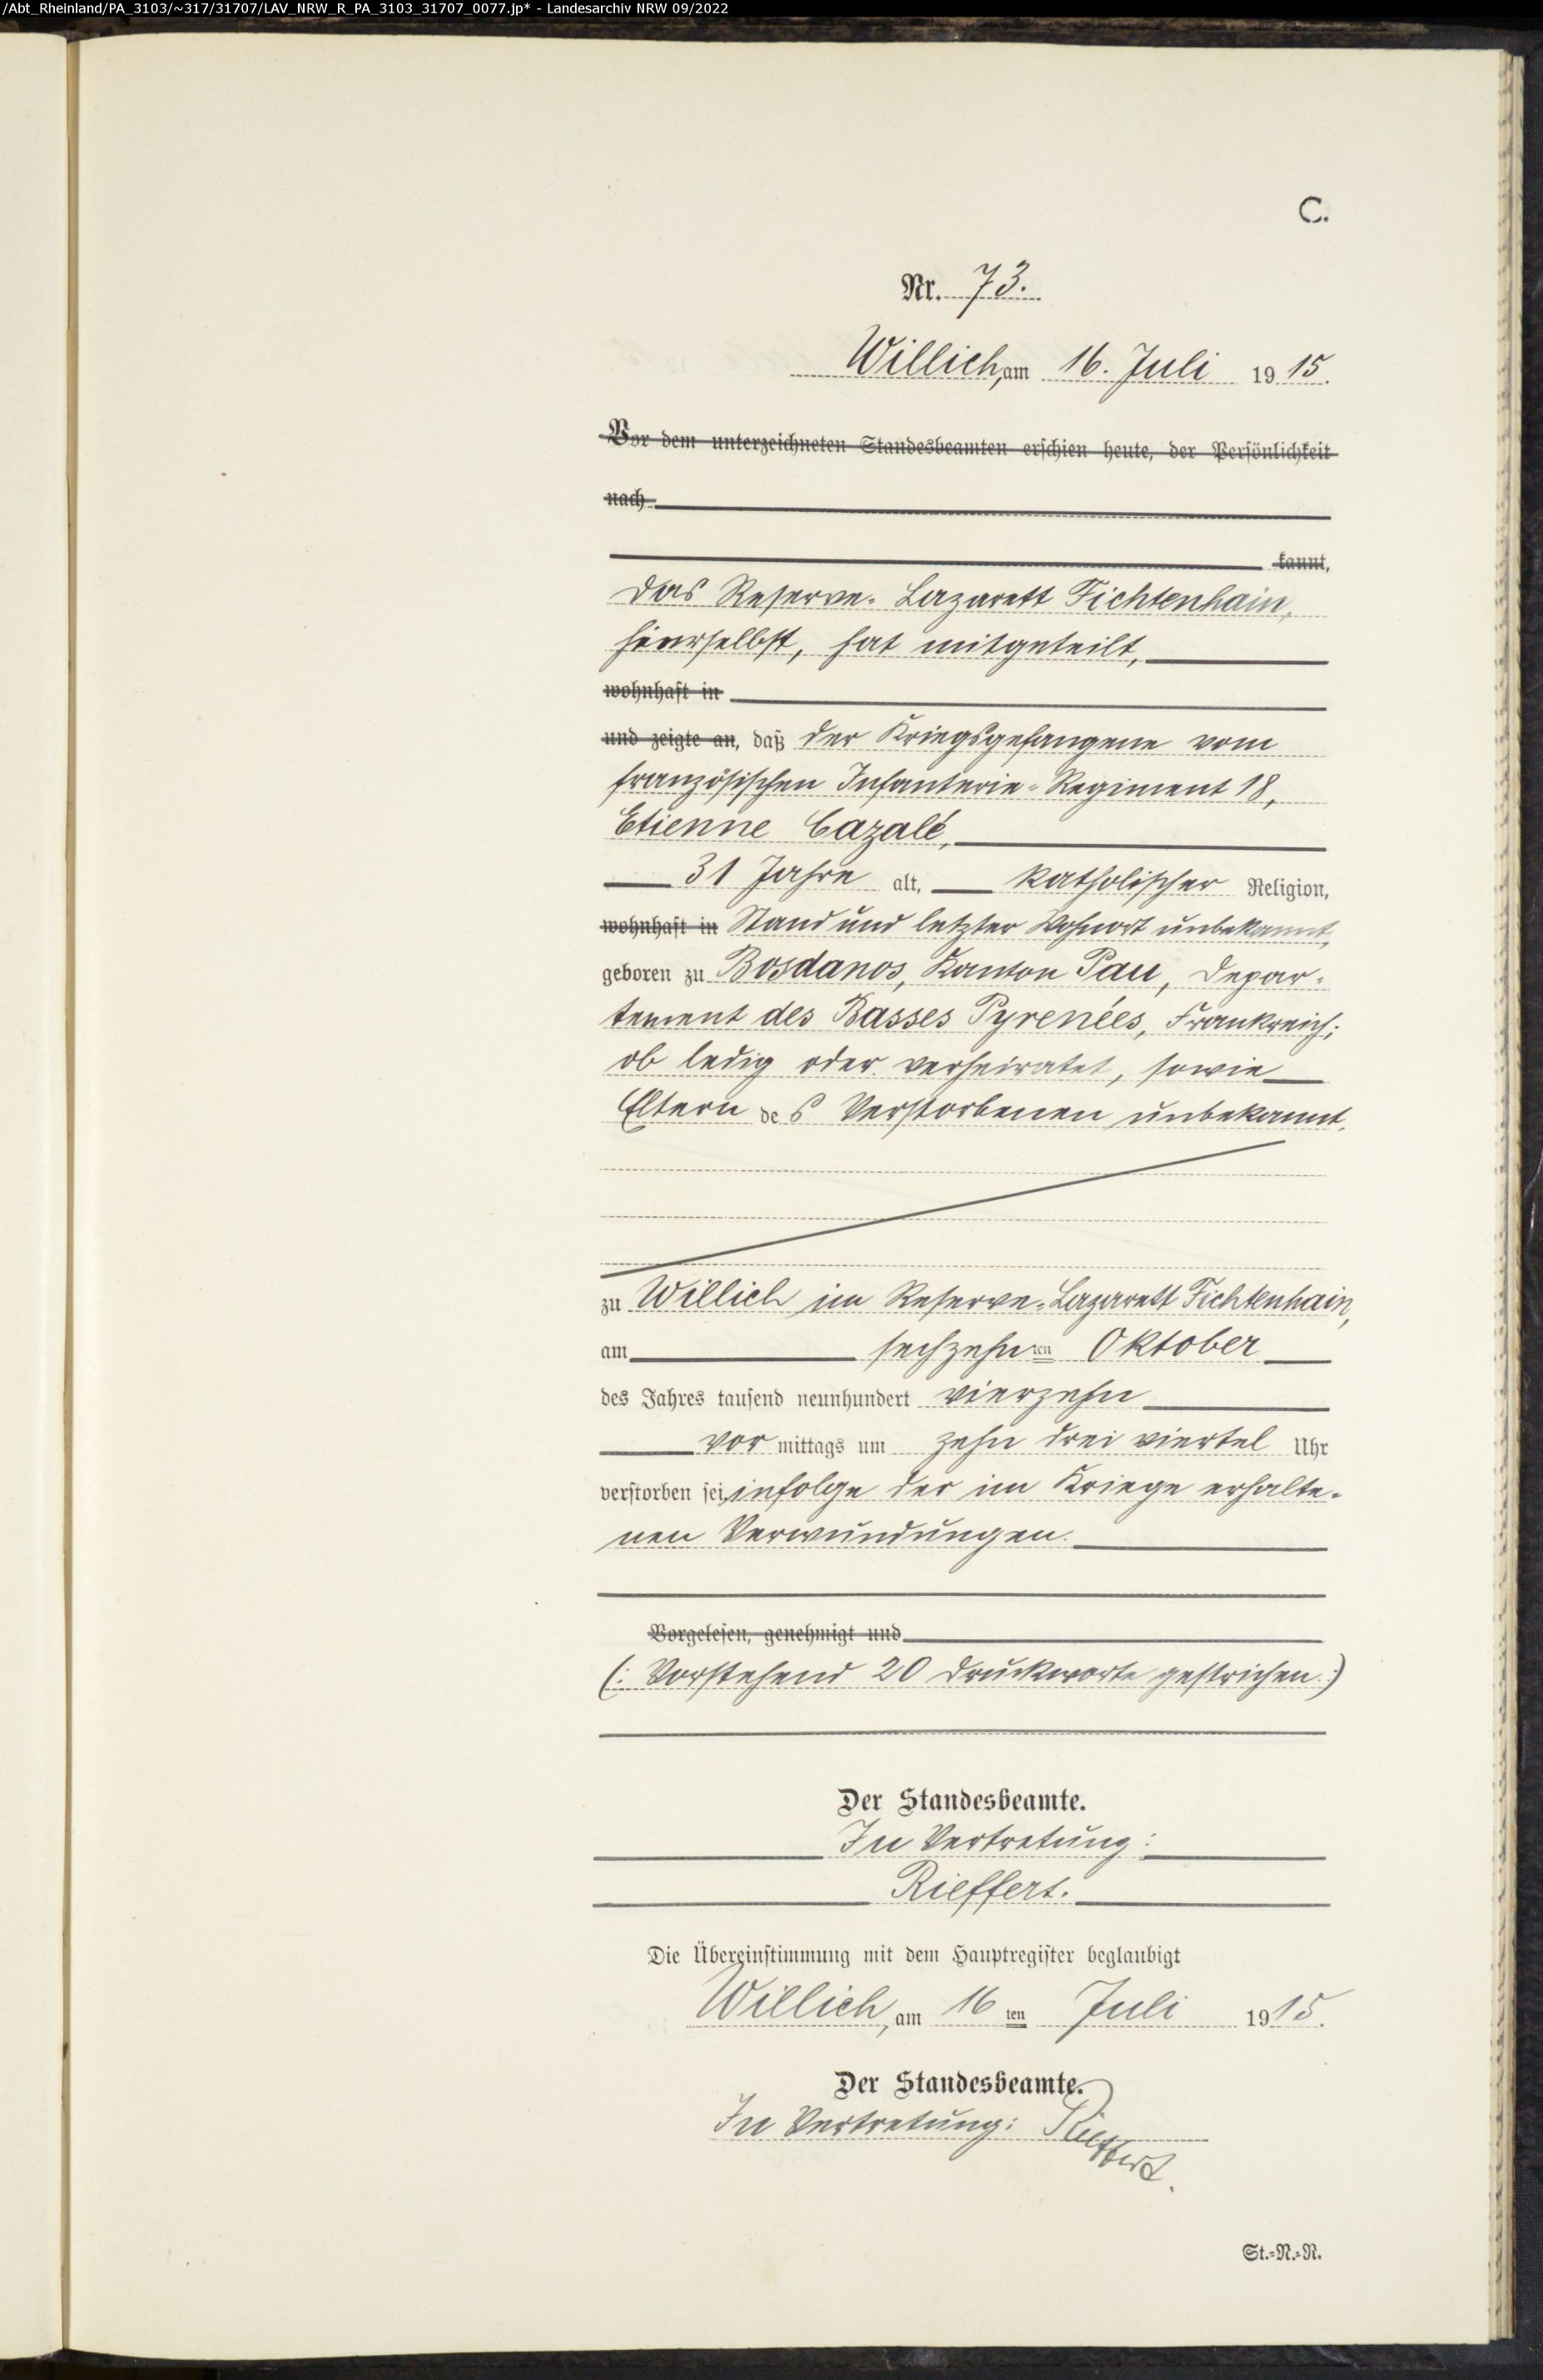 /Abt_Rheinland/PA_3103/~317/31707/LAV_NRW_R_PA_3103_31707_0077.jp* - Landesarchiv NRW 09/2022
C.
Nr. 73.
Willich, am 16. Juli 1915.
Vor dem unterzeichneten Standesbeamten erschien heute, der Persönlichkeit
nach
kannt,
Das Reserve-Lazarett Fichtenhain,
hierselbst, hat mitgeteilt,
wohnhaft in
und zeigte an, daß der Kriegsgefangene vom
französischen Infanterie-Regiment 18,
Etienne Cazalé,
31 Jahre alt, katholischer Religion,
wohnhaft in Stand und letzter Wohnort unbekannt,
geboren zu Bosdanos, Kanton Pau, Depar-
tement des Basses Pyrenées, Frankreich;
ob ledig oder verheiratet, sowie
Eltern des Verstorbenen unbekannt,
zu Willich im Reserve-Lazarett Fichtenhain,
am sechzehnten Oktober
des Jahres tausend neunhundert vierzehn
vormittags um zehn drei viertel Uhr
verstorben sei, infolge der im Kriege erhalte-
nen Verwundungen.
Vorgelesen, genehmigt und
(: Vorstehend 20 Druckworte gestrichen :)
Der Standesbeamte.
In Vertretung:
Rieffert.
Die Übereinstimmung mit dem Hauptregister beglaubigt
Willich, am 16ten Juli 1915.
Der Standesbeamte.
In Vertretung: Rieffert.
St.-N.-R.